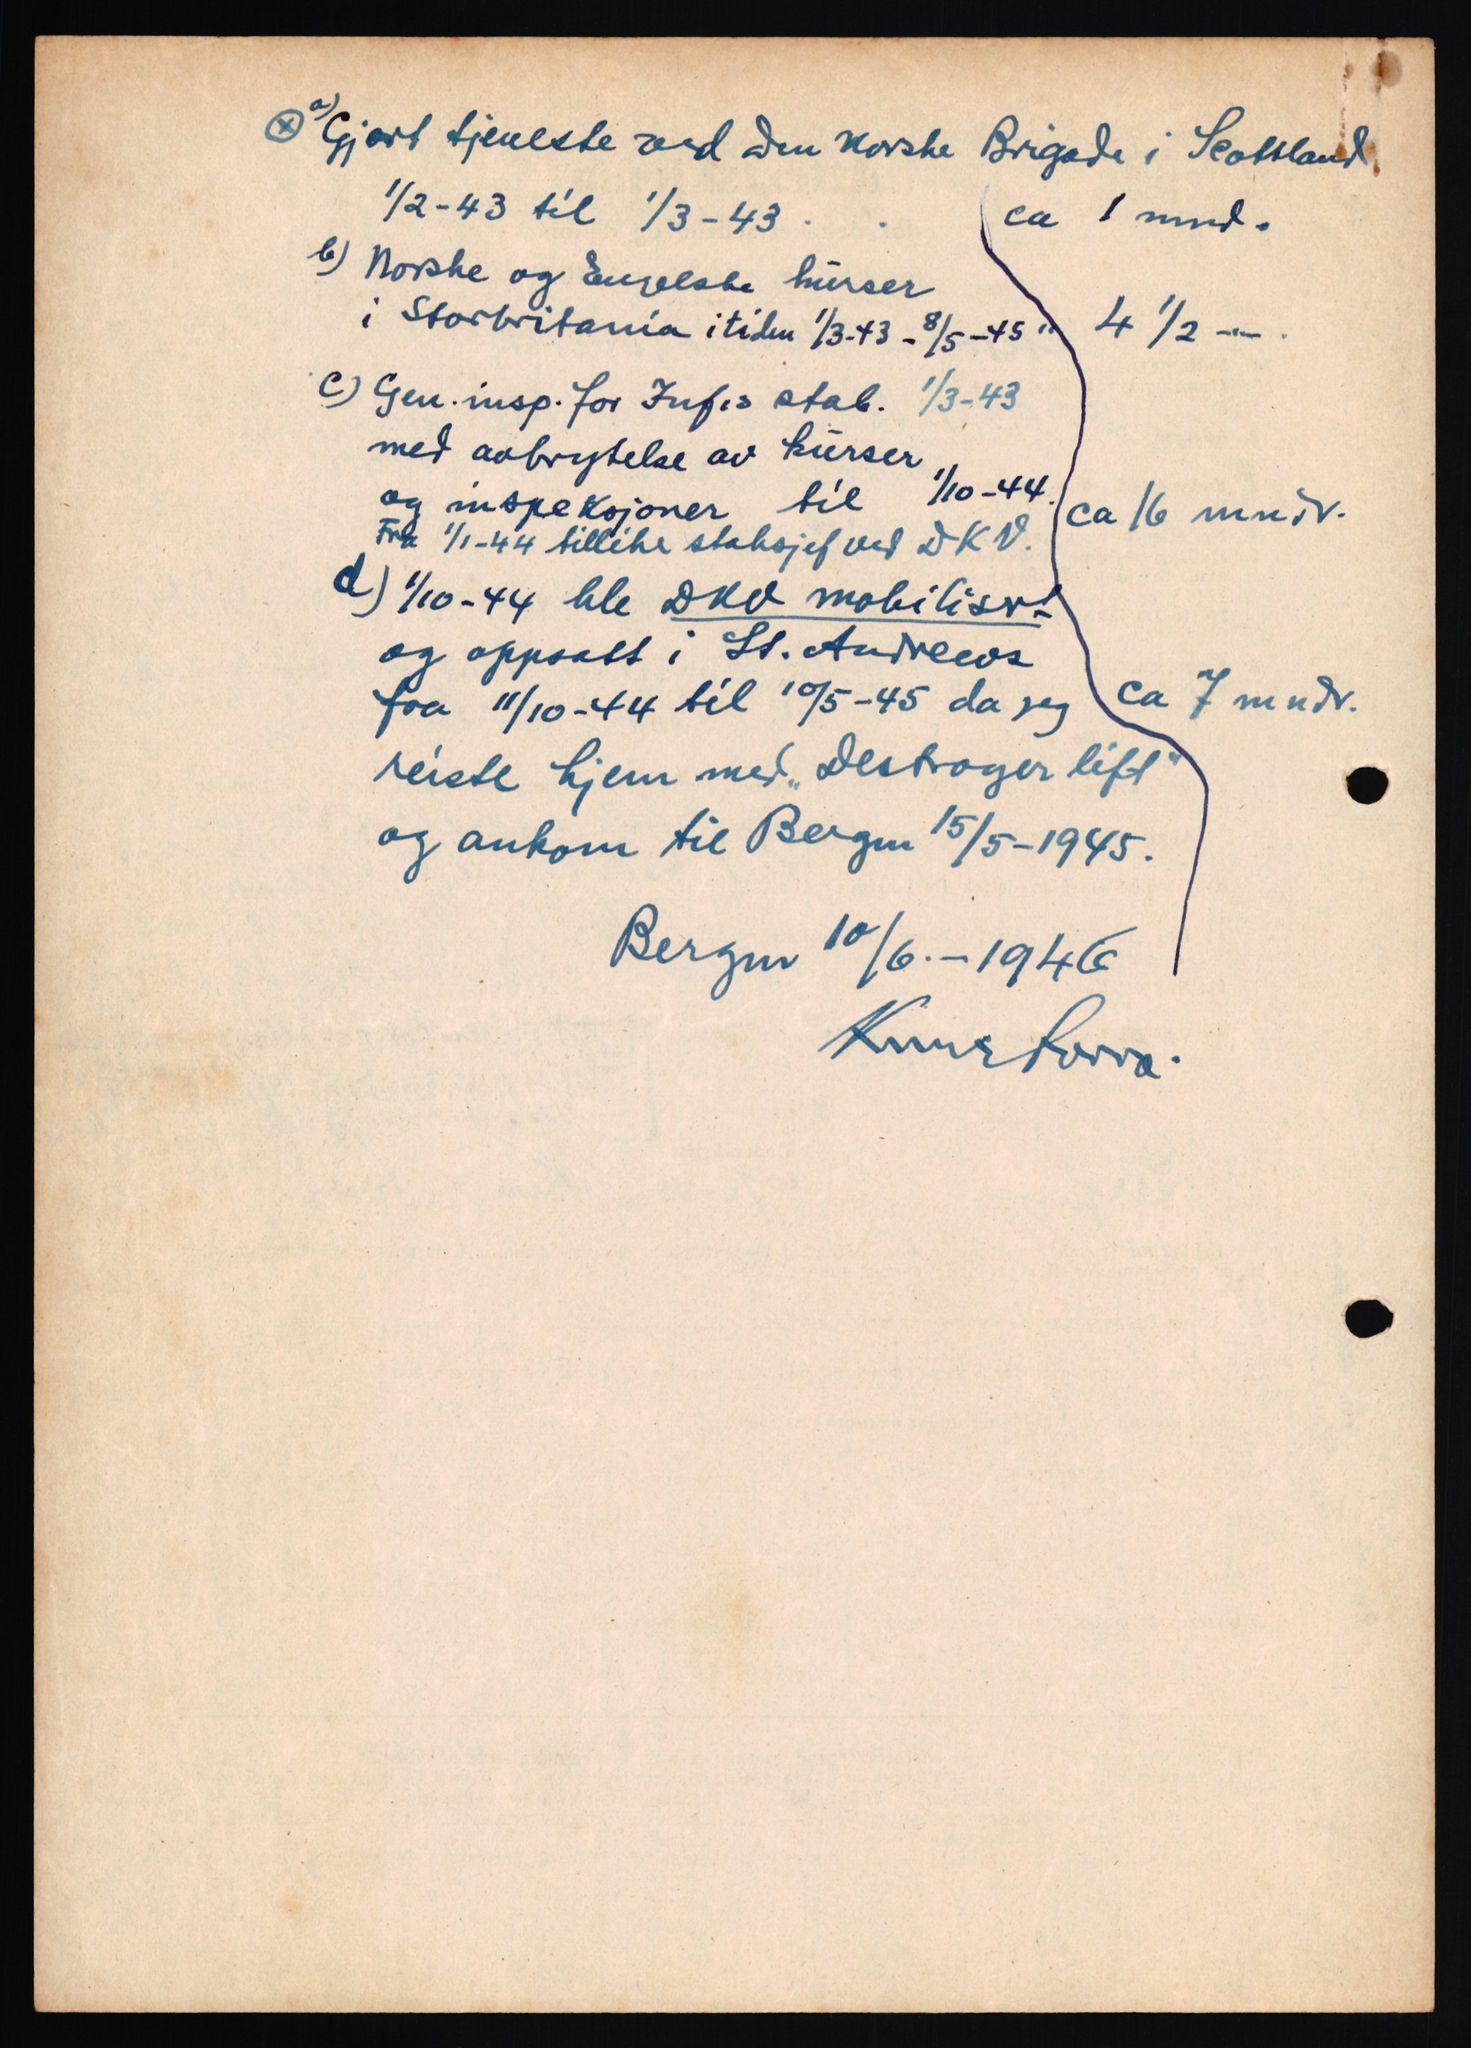 ⓧ a) Gjort tjeneste ved den norske Brigade i Scottland
1/2-43 til 1/3-43 . . ca 1 mnd.
b) Norske og Engelske kurser
i Storbritania i tiden 1/3-43 - 8/5-45 " 4 1/2 —"— .
c) Gen.insp. for Inf.s stab. 1/3-43
med avbrytelse av kurser
og inspeksjoner til 1/10-44. ca 16 mndr.
Fra 1/1-44 tillike stabsjef ved DKV.
d) 1/10-44 ble DKV mobilisert
og oppsatt i St. Andrews
fra 11/10-44 til 10/5-45 da jeg ca 7 mndr.
reiste hjem med „Destroyer lift"
og ankom til Bergen 15/5-1945.
Bergen 10/6.-1946